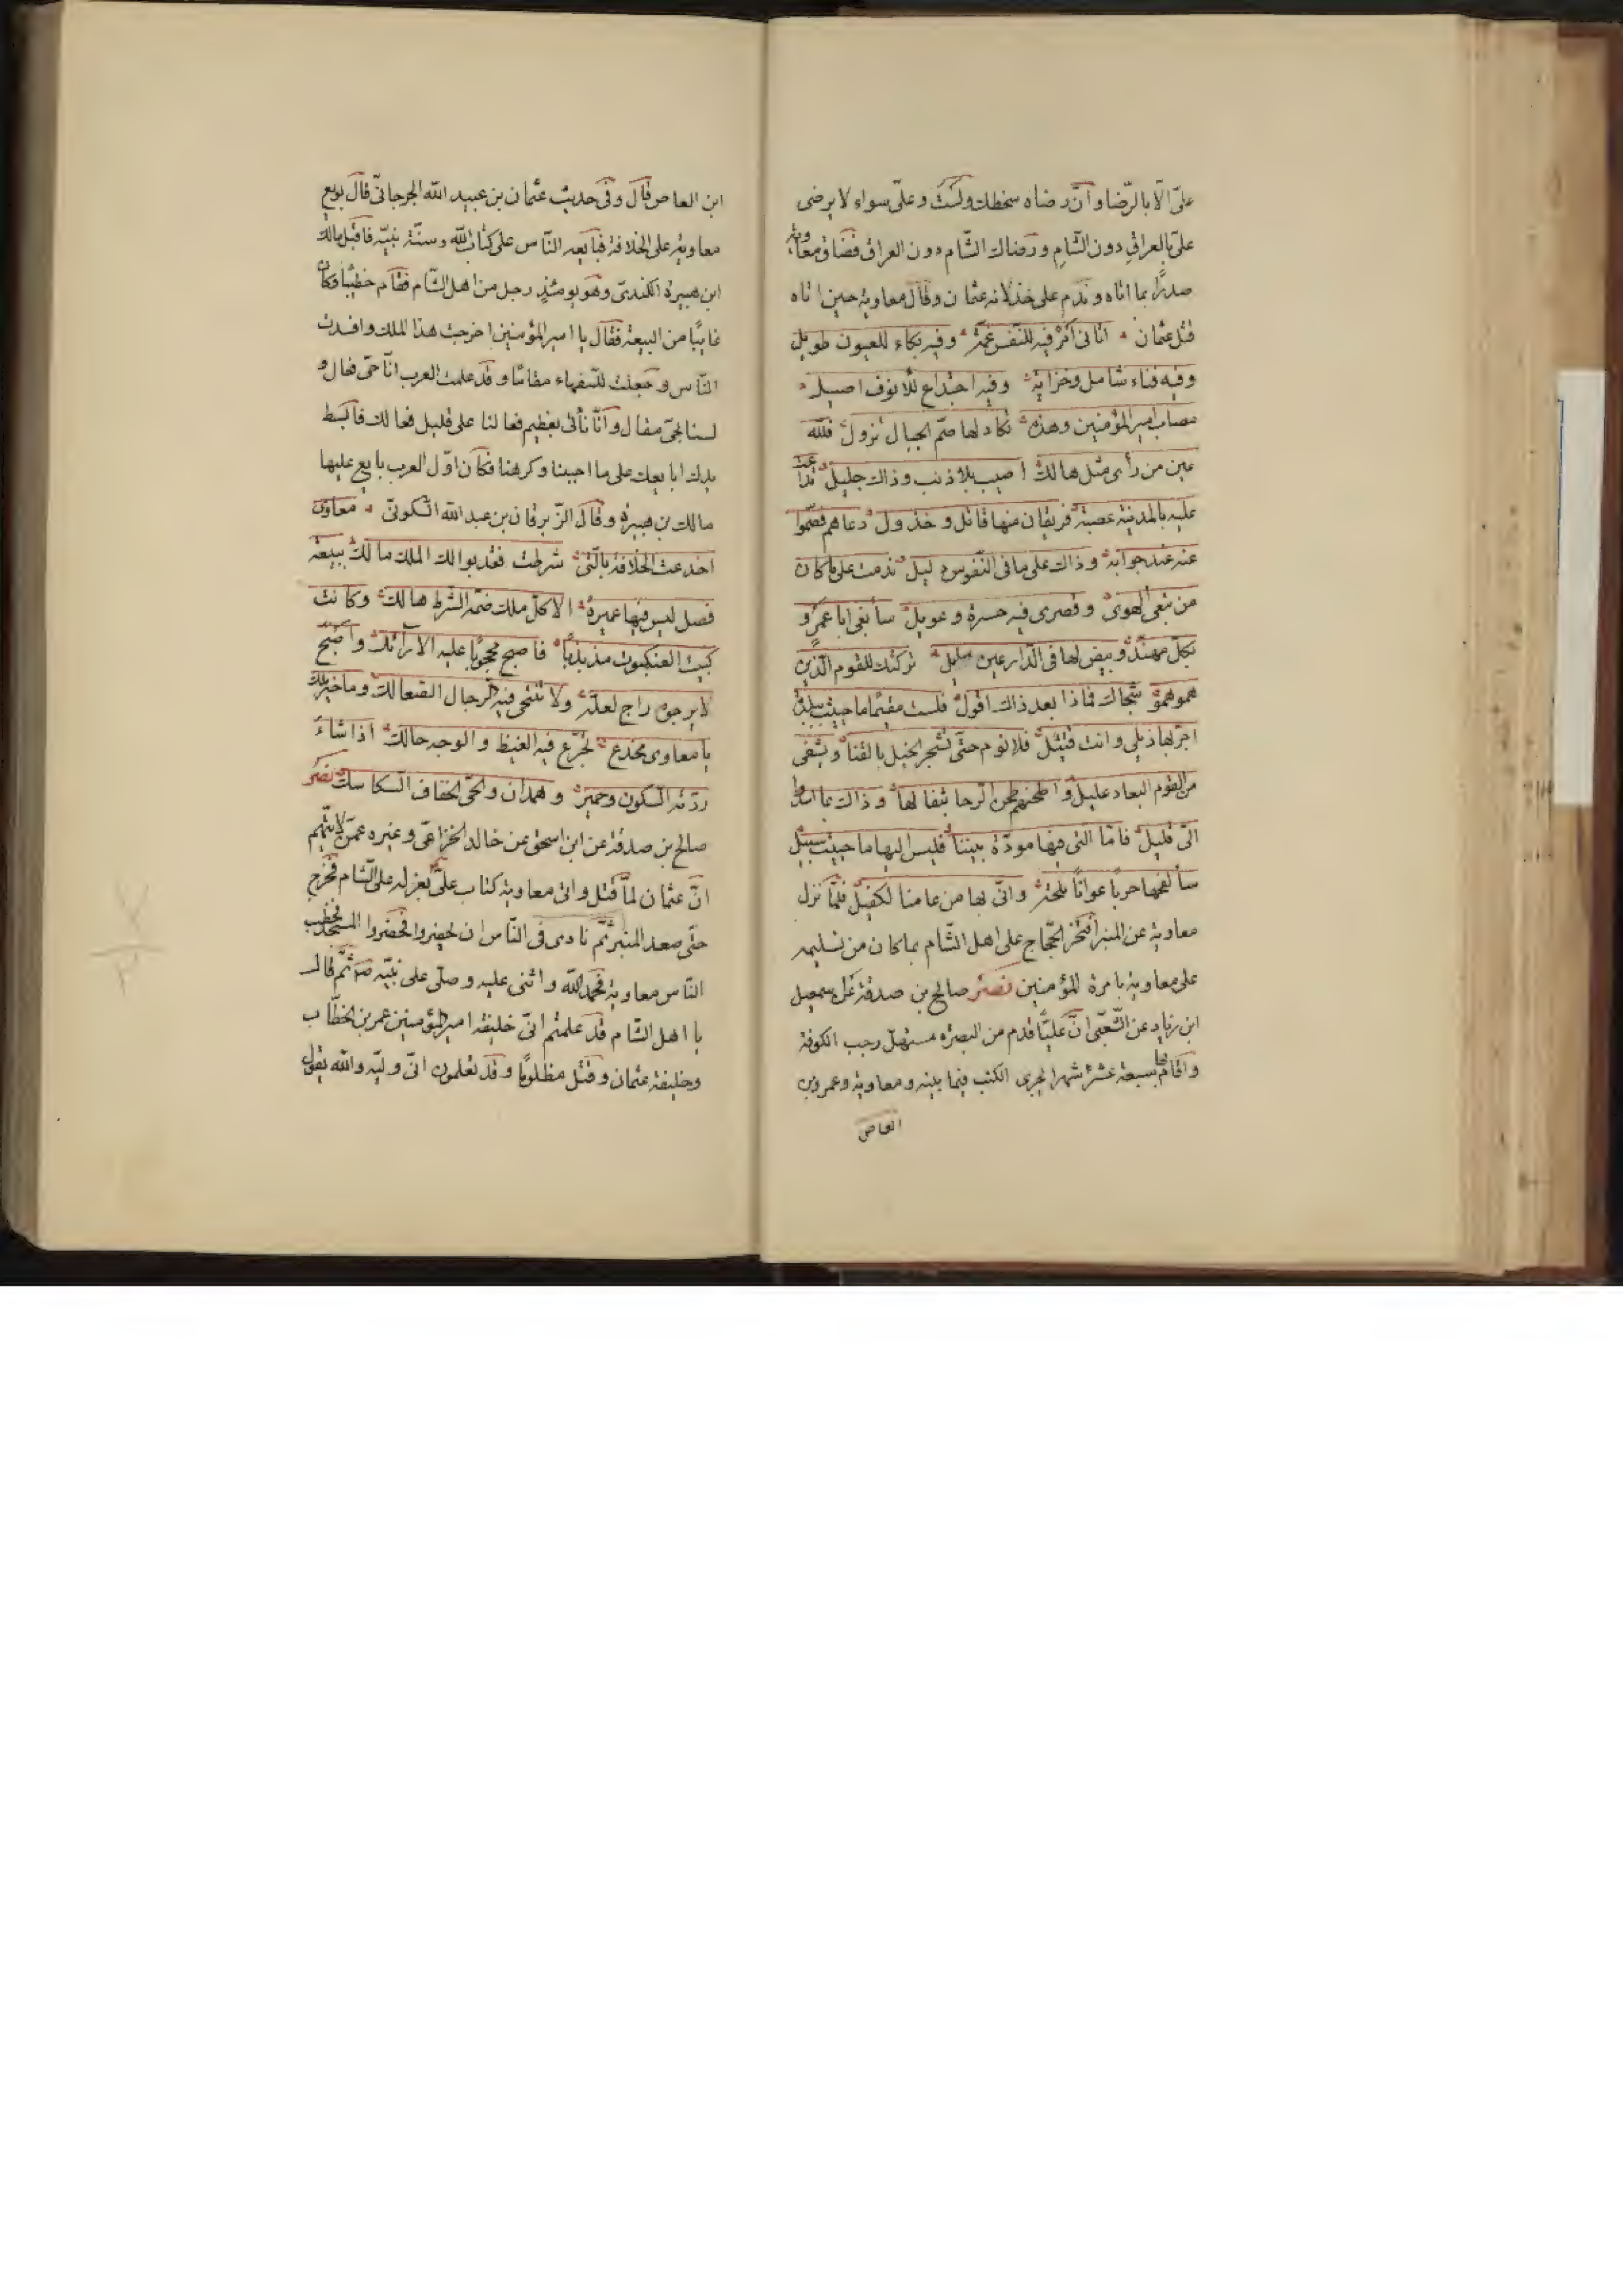 علىّ الّا بالرّضا وانّ رضاه سخطك ولست وعلىّ سواء لا يرضى
علىّ بالعراق دون الشّام ورضاك الشّام دون العراق فضاق معاوية
صدرًا بما اتاه وندم على خذلانه عثمان وقال معاوية حين اتاه
قتل عثمان اتانى امر فيه للنّفس غمّة وفيه بكاء للعيون طويل
وفيه فناء شامل وخزاية وفيه اجتداع للانوف اصيل
مصاب امير المؤمنين وهذه تكاد لها صمّ الجبال تزول فللّه
عين من رأى مثل هالك اصيب بلا ذنب وذاك جليل تداعت
عليه بالمدينة عصبة فريقان منها قاتل وخذول دعاهم فصمّوا
عنه عند جوابه وذاك على ما فى النّفوس دليل ندمت على ما كان
من تبعى الهوى وقصرى فيه حسرة وعويل سأبغى ابا عمرو
بكلّ مهنّد وبيض لها فى الدّارعين صليل تركتك للقوم الّذين
همو همو شجاك فماذا بعد ذاك اقول فلست مقيمًا ما حييت ببلدة
اجرّ بها ذيلى وانت قتيل فلا نوم حتّى تشجر الخيل بالقنا ويشفى
من القوم البعاد غليل واطحنهم طحن الرحا بثفالها وذاك بما اسدوا
الىّ قليل فامّا التى فيها مودّة بيننا فليس اليها ما حييت سبيل
سألقحها حربًا عوانًا ملحّة وانّى بها من عامنا لكفيل فلمّا نزل
معاوية عن المنبر افتخر الحجّاج على اهل الشّام بما كان من تسليمه
على معاوية بامرة المؤمنين نصر صالح بن صدقة عن اسمعيل
ابن زياد عن الشّعبّى انّ عليًّا قدم من البصرة مستهلّ رجب الكوفة
واقام بها سبعة عشر شهرا يجرى الكتب فيما بينه ومعاوية وعمرو بن
العاص
ابن العاص قال وفى حديث عثمان بن عبيد الله الجرجانىّ قال بويع
معاوية على الخلافة فبايعه النّاس على كتاب الله وسنّة نبيّه فاقبل مالك
ابن هبيرة الكندىّ وهو يومئذ رجل من اهل الشّام فقام خطيبًا وكان
غايبًا من البيعة فقال يا امير المؤمنين اخرجت هذا الملك وافسدت
النّاس وجعلت للسّفهاء مقالًا وقد علمت العرب انّا حىّ فعال و
لسنا بحىّ مقال وانّا نأتى بعظيم فعالنا على قليل فعالك فابسط
يدك ابايعك على ما احببنا وكرهنا فكان اوّل العرب بايع عليها
مالك بن هبيرة وقال الزّبرقان بن عبد الله السّكونىّ معاوى
اخدعت الخلافة بالّتى شرطت فقد بوا لك الملك مالك ببيعة
فصل ليس فيها غميزة الا كلّ ملك ضمّه الشّرط هالك وكانت
كبيت العنكبوت مذبذبًا فاصبح محجوبًا عليه الارآئك واصبح
لا يرجوه راج لعلّة ولا تنتحى فيه الرجال الصّعالك وما خير ملك
يا معاوى مخدع تجرّع فيه الغيظ والوجه حالك اذا شاء
ردّته السّكون وحمير وهمدان والحىّ الخفاف السّكاسك نصر
صالح بن صدقة عن ابن اسحق عن خالد الخزاعىّ وغيره عمّن لا يتّهم
انّ عثمان لمّا قتل واتى معاوية كتاب علىّ بعزله على الشّام فخرج
حتّى صعد المنبر ثمّ نادى فى النّاس ان يحضروا فحضروا المسجد فخطب
النّاس معاوية فحمد الله واثنى عليه وصلّى على نبيّه ص ثمّ قال
يا اهل الشّام قد علمتم انّى خليفة امير المؤمنين عمر بن الخطّاب
وخليفة عثمان وقتل مظلومًا وقد تعلمون انّى وليّه والله يقول